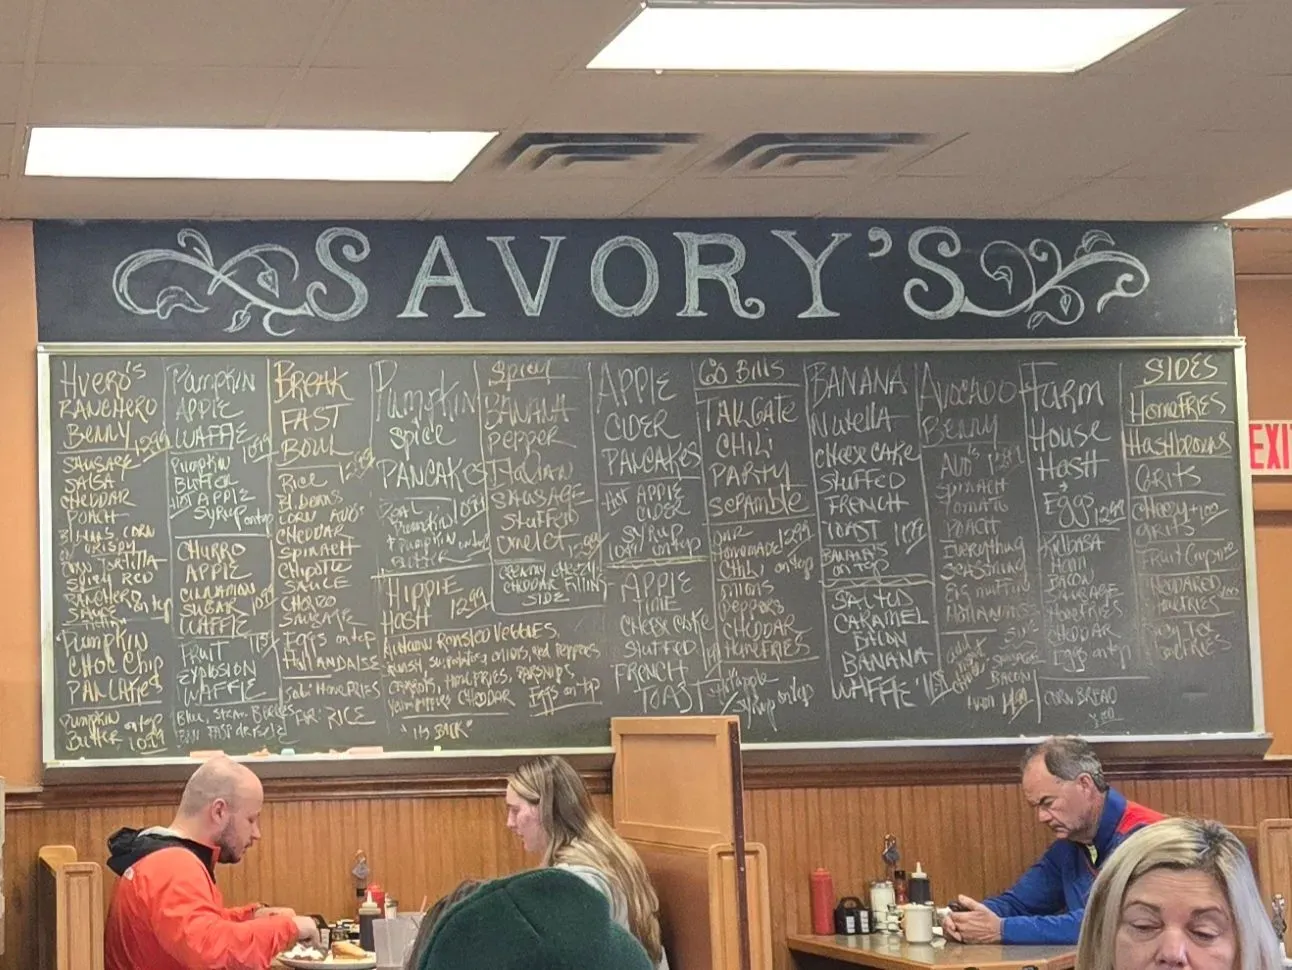 SAVORY'S
HUERO'S
RANCHERO
BENNY 12.99
SAUSAGE
SALSA
CHEDDAR
POACH
CORN
CRISPY
TORTILLA
SPICY RED
RANCHERO
SAUCE on top
PUMPKIN
CHOC CHIP
PANCAKES
PUMPKIN
BUTTER on top 10.99
PUMPKIN
APPLE
WAFFLE 10.99
PUMPKIN
BUTTER
HOT APPLE
SYRUP on top
CHURRO
APPLE
CINNAMON
SUGAR
WAFFLE 10.99
FRUIT
EXPLOSION
WAFFLE
BREAK
FAST
BOWL
RICE
CHEDDAR
SPINACH
CHIPOTLE
SAUCE
CHORIZO
SAUSAGE
EGGS on top
HOLLANDAISE
Sub: HOMEFRIES
FOR: RICE
PUMPKIN
SPICE
PANCAKES
REAL
PUMPKIN 10.99
PUMPKIN on top
BUTTER
HIPPIE
HASH 12.99
AUTUMN ROASTED VEGGIES,
SQUASH, SW. POTATOES, ONIONS, RED PEPPERS
CARROTS, HOMEFRIES, PARSNIPS
CHEDDAR EGGS on top
"IT'S BACK"
SPICY
BANANA
PEPPER
ITALIAN
SAUSAGE
STUFFED
OMELET 12.99
CREAMY CHEESY
CHEDDAR FILLING
SIDE
APPLE
CIDER
PANCAKES
HOT APPLE
CIDER
SYRUP
10.99 on top
APPLE
TIME
CHEESECAKE
STUFFED
FRENCH
TOAST
HOT APPLE
SYRUP on top
GO BILLS
TAILGATE
CHILI
PARTY
SCRAMBLE
OUR
HOMEMADE 12.99
CHILI on top
ONIONS
PEPPERS
CHEDDAR
HOMEFRIES
BANANA
NUTELLA
CHEESECAKE
STUFFED
FRENCH
TOAST 11.99
BANANAS
on top
SALTED
CARAMEL
BACON
BANANA
WAFFLE
AVOCADO
BENNY
AVO'S 12.99
SPINACH
TOMATO
POACH
EVERYTHING
SEASONING
ENG MUFFIN
HOLLANDAISE
SAUSAGE
BACON
FARM
HOUSE
HASH
&
EGGS 12.99
KILBASA
HAM
BACON
SAUSAGE
HOMEFRIES
CHEDDAR
EGGS on top
CORN BREAD
SIDES
HOMEFRIES
HASHBROWNS
GRITS
CHEESY +1.00
GRITS
FRUIT CUP
HOMEFRIES
EXIT